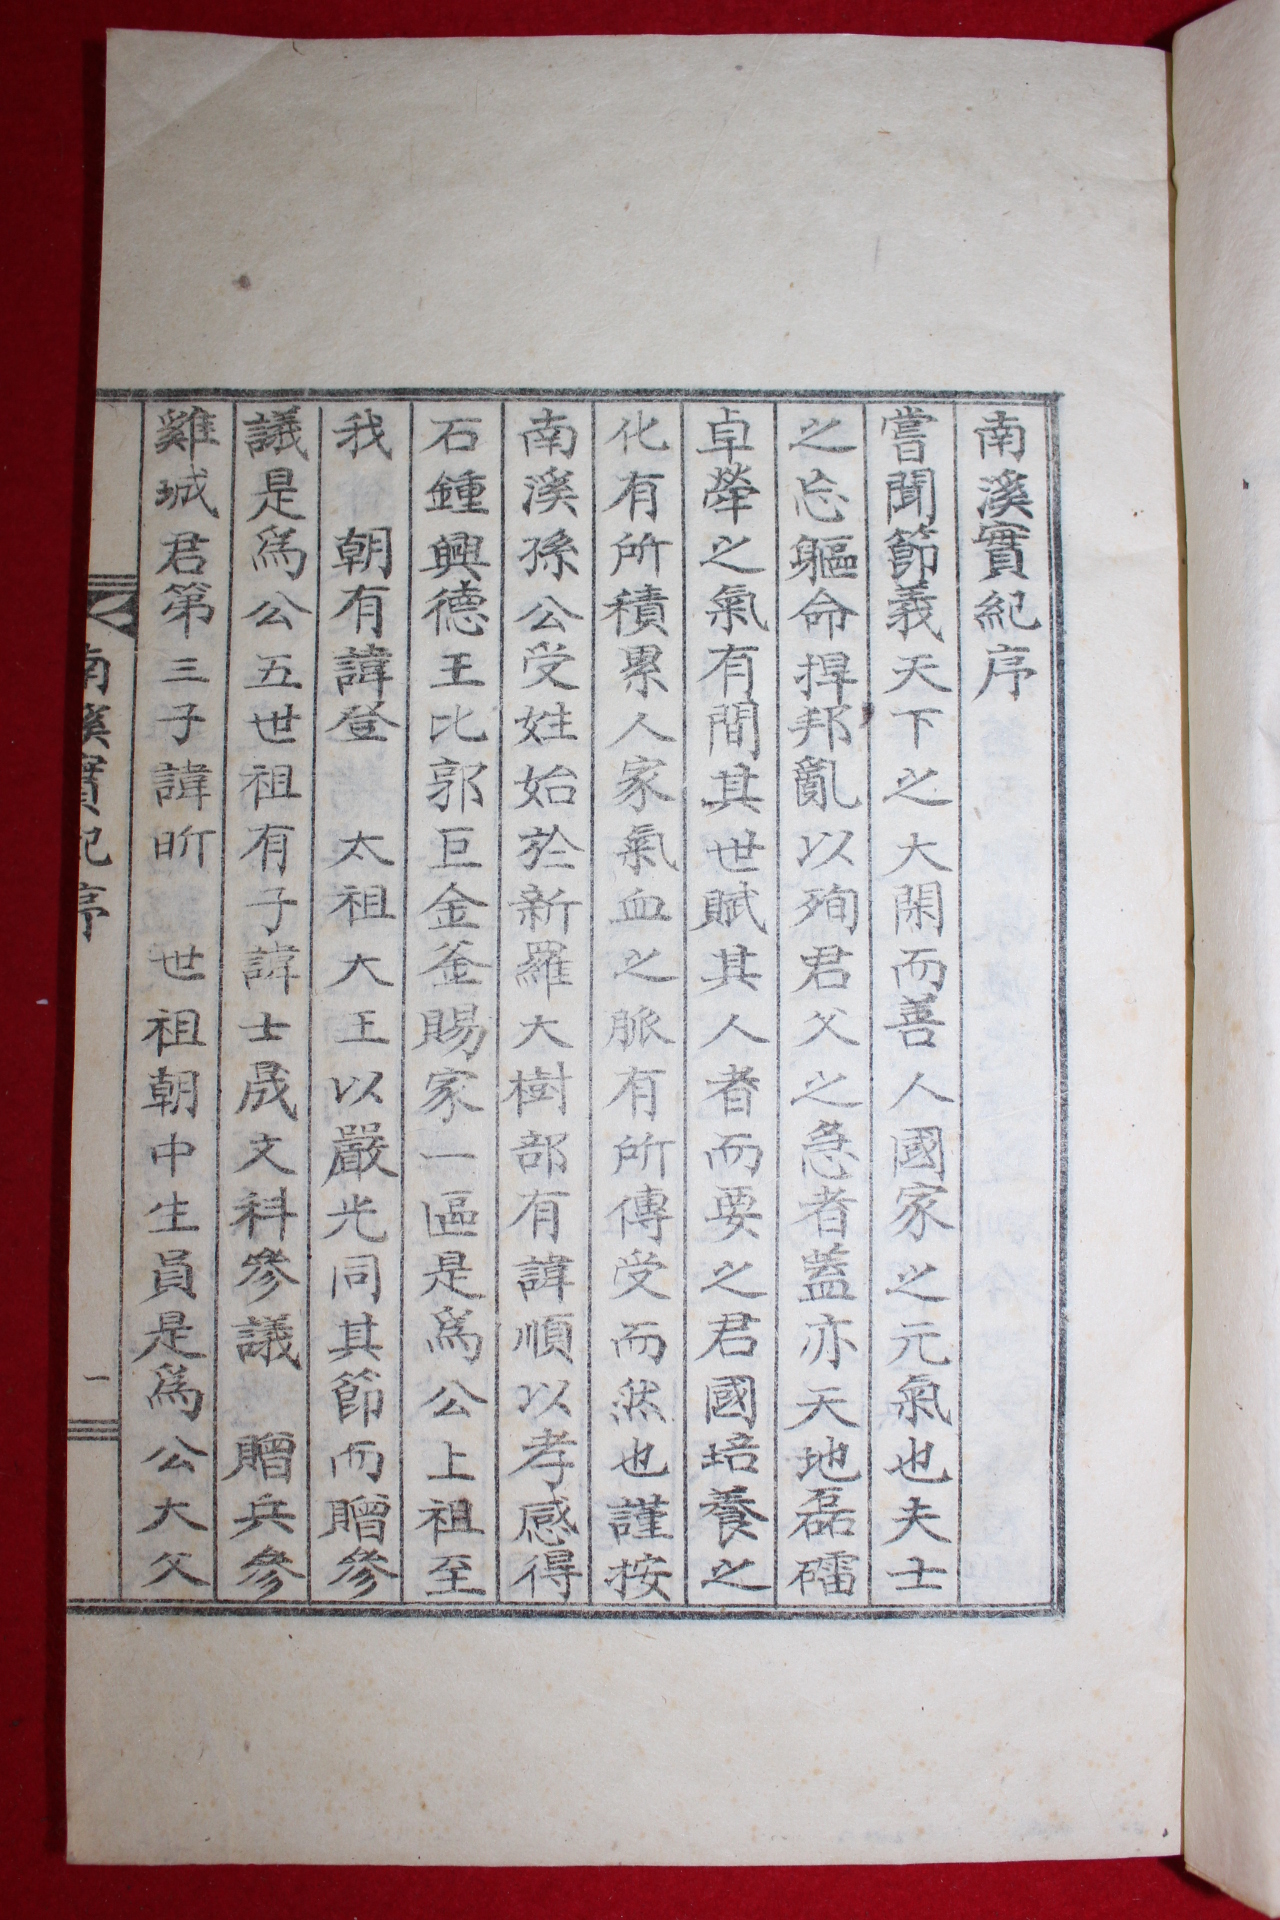 南溪實紀序
嘗聞節義天下之大閑而善人國家之元氣也夫士
之忘軀命捍邦亂以殉君父之急者蓋亦天地磊礌
卓犖之氣有間其世賦其人者而要之君國培養之
化有所積累人家氣血之脈有所傳受而然也謹按
南溪孫公受姓始於新羅大樹部有諱順以孝感得
石鍾興德王比郭巨金釜賜家一區是爲公上祖至
我 朝有諱登 太祖大王以嚴光同其節而贈參
議是爲公五世祖有子諱士晟文科參議 贈兵參
雞城君第三子諱昕 世祖朝中生員是爲公大父
南溪實紀序 一